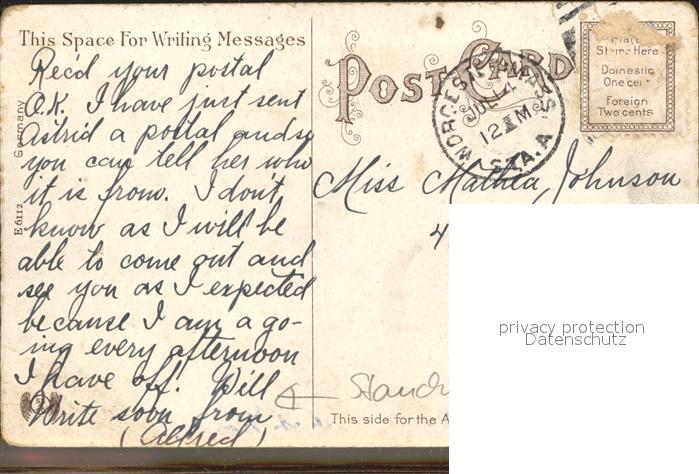 This Space For Writing Messages
Rec'd your postal
O.K. I have just sent
Astrid a postal and so
you can tell her who
it is from. I don't
know as I will be
able to come out and
see you as I expected
because I am a go-
ing every afternoon
I have off. Will
Write soon from
(Alfred)
Germany
E 6112
POST CARD
WORCESTER MASS.
JUL 24
12 M
STA. A
Place
Stamp Here
Domestic
One cent
Foreign
Two cents
Miss Mathea Johnson
4
privacy protection
Datenschutz
This side for the A